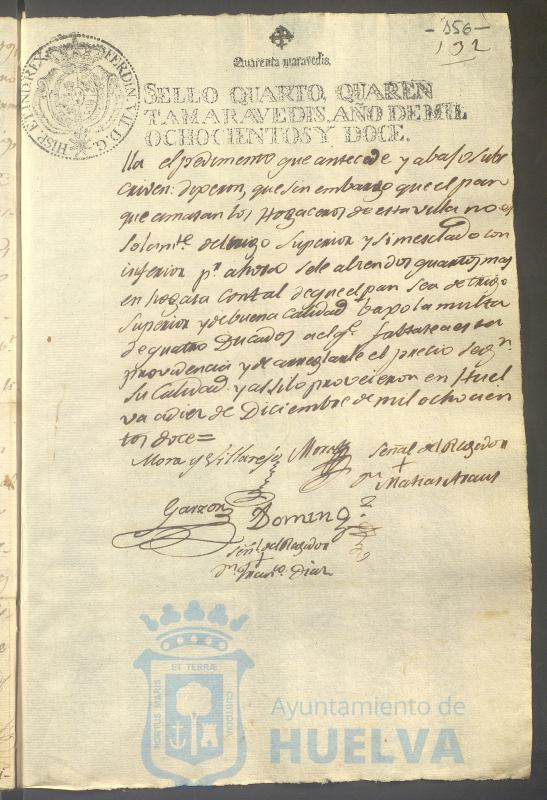 -156-
132
Quarenta maravedis.
HISP. ET IND. REX FERDIN. VII. D. G.
SELLO QUARTO, QUAREN
TA MARAVEDIS, AÑO DE MIL
OCHOCIENTOS Y DOCE.
lla el pedimento que antecede y abaxo subs
criven: dixeron, que sin embargo que el pan
que amasan los Hogaceros de esta villa no es
solamte. de trigo superior y si mesclado con
inferior pr. ahora se le alzen dos quartos mas
en hogaza con tal de que el pan sea de trigo
superior y de buena calidad bajo la multa
de quatro Ducados a el qe. faltare a esta
providencia y de arreglarle el precio segn.
su calidad: y asi lo proveieron en Huel
va a diez de Diciembre de mil ochocien
tos doce=
Mora y Villarejo
Señal del Rexidor
+
Dn. Matias
Garzon
Doming.
Señl. del Rexidor
+
Dn. Franco. Diaz
PORTUS MARIS ET TERRÆ CUSTODIA
Ayuntamiento de
HUELVA